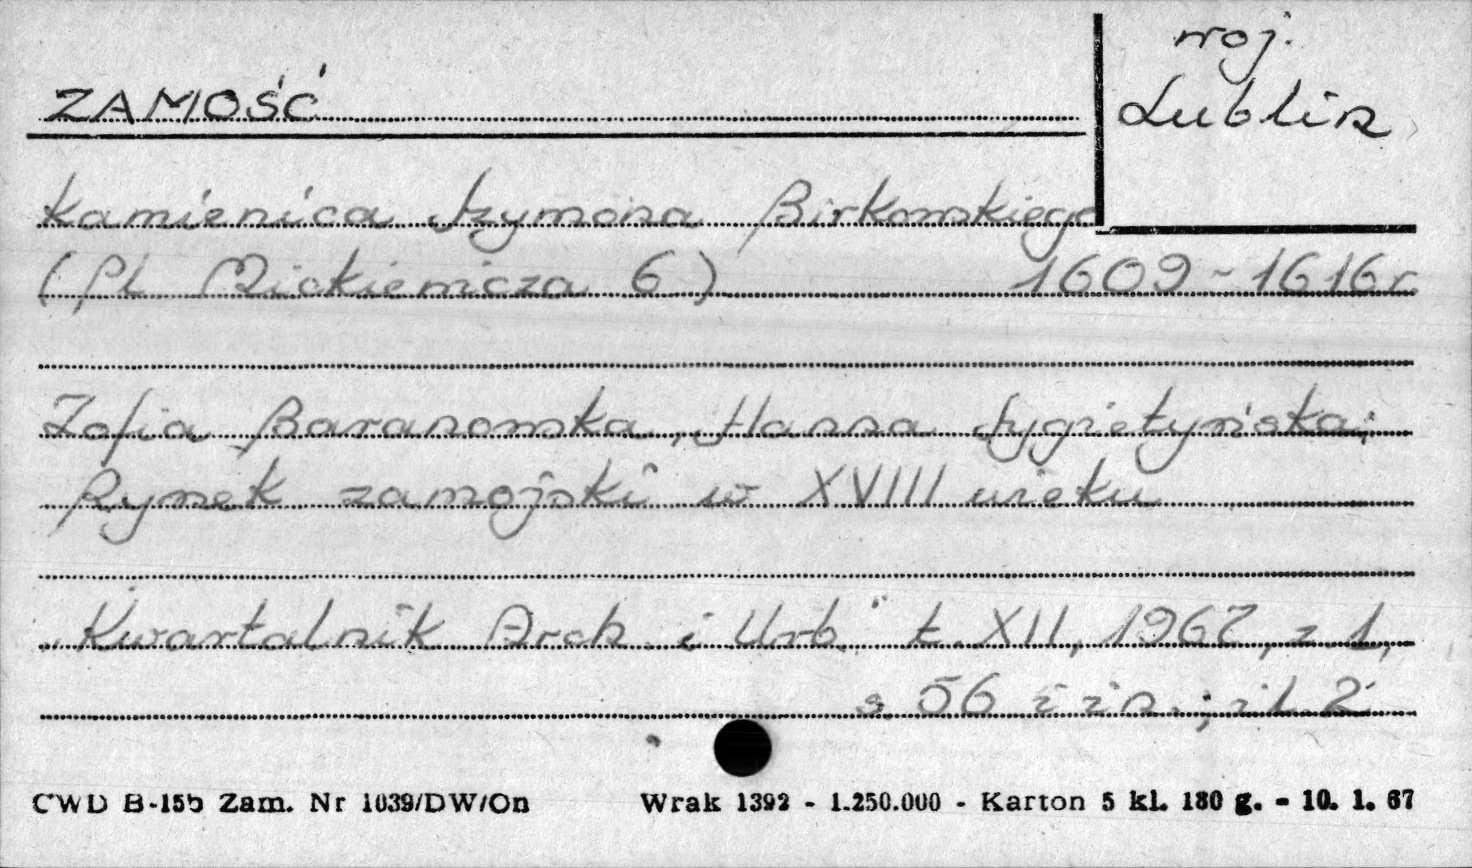 woj.
Lublin
ZAMOŚĆ
Kamienica Szymona Birkowskiego
(Pl. Mickiewicza 6) 1609-1616 r.
Zofia Baranowska, Hanna Sygietyńska;
Rynek zamojski w XVIII wieku
„Kwartalnik Arch. i Urb." t. XII, 1967, z 1,
s. 56 i in.; il. 2
CWD B-155 Zam. Nr 1039/DW/On Wrak 1392 - 1.250.000 - Karton 5 kl. 180 g. - 10. 1. 67